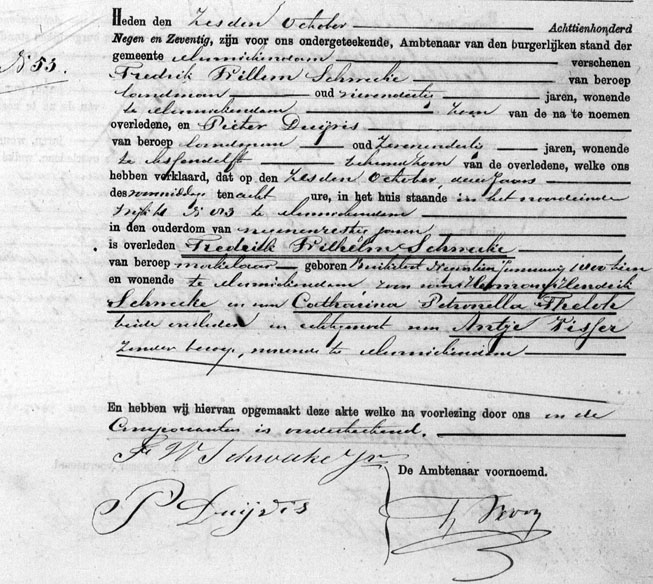 Heden den Zesden October Achttienhonderd
Negen en Zeventig, zijn voor ons ondergeteekende, Ambtenaar van den burgerlijken stand der
gemeente Monnickendam verschenen
N. 53.
Fredrik Willem Schweke van beroep
Landman oud vierendertig jaren, wonende
te Monnickendam Zoon van de na te noemen
overledene, en Pieter Duijvis
van beroep Landman oud Zevenendertig jaren, wonende
te Assendelft behuwdzoon van de overledene, welke ons
hebben verklaard, dat op den Zesden October, dezes Jaars
des voormiddags ten acht ure, in het huis staande in het noordeinde
wijk te Monnickendam
in den ouderdom van negenenzestig jaren
is overleden Fredrik Wilhelm Schweke
van beroep makelaar geboren Buiksloot Januarij
en wonende te Monnickendam zoon van Herman Hendrik
Schweke en van Catharina Petronella Thelot
beide overleden en echtgenoot van Antje Visser
Zonder beroep, wonende te Monnickendam
En hebben wij hiervan opgemaakt deze akte welke na voorlezing door ons en de
Comparanten is onderteekend.
F W Schweke Jr
De Ambtenaar voornoemd.
P Duijvis